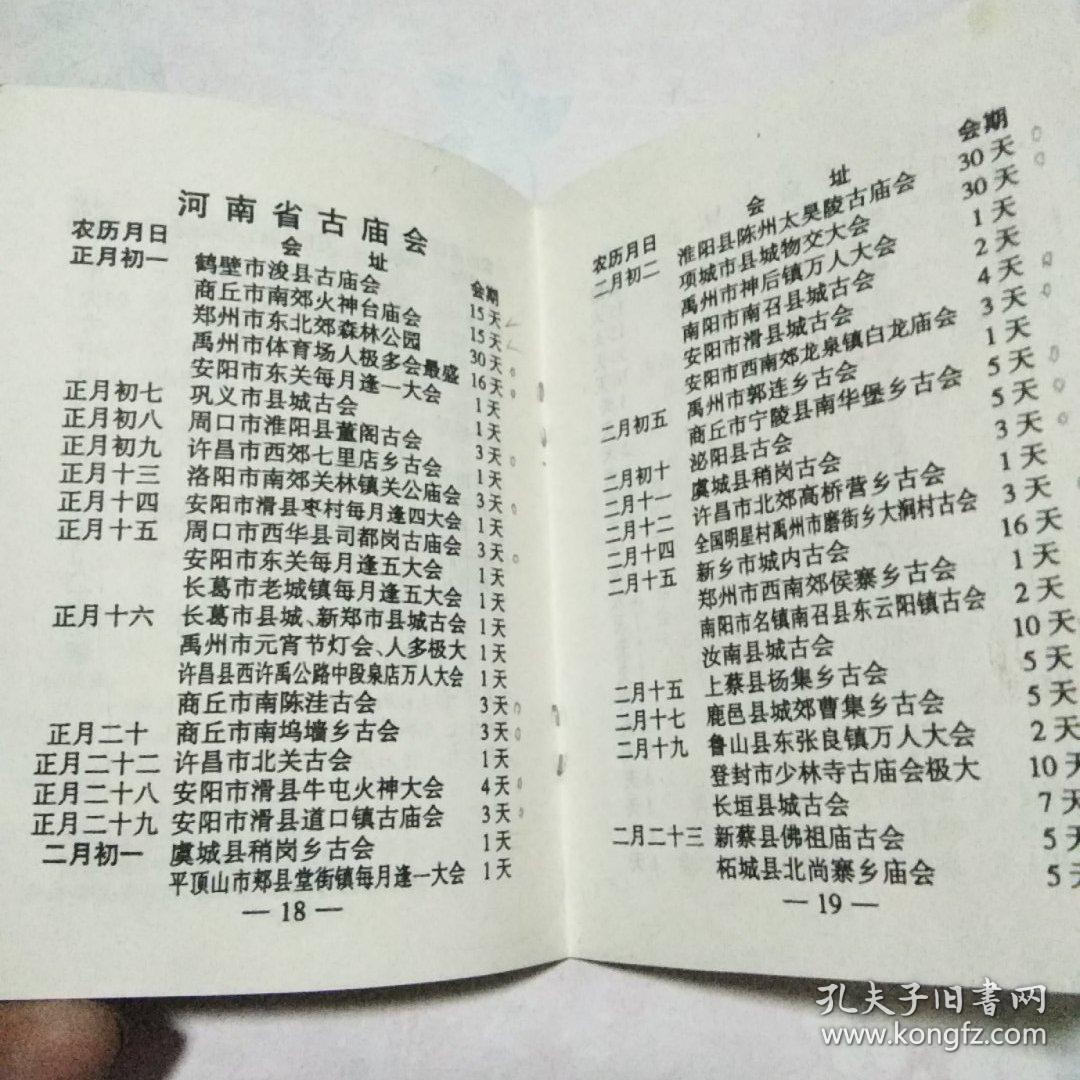 河南省古庙会
农历月日 会 址 会期
正月初一 鹤壁市浚县古庙会 15天
商丘市南郊火神台庙会 15天
郑州市东北郊森林公园 30天
禹州市体育场人极多会最盛 16天
安阳市东关每月逢一大会 1天
正月初七 巩义市县城古会 1天
正月初八 周口市淮阳县董阁古会 3天
正月初九 许昌市西郊七里店乡古会 1天
正月十三 洛阳市南郊关林镇关公庙会 3天
正月十四 安阳市滑县枣村每月逢四大会 1天
正月十五 周口市西华县司都岗古庙会 3天
安阳市东关每月逢五大会 1天
长葛市老城镇每月逢五大会 1天
正月十六 长葛市县城、新郑市县城古会 1天
禹州市元宵节灯会、人多极大 1天
许昌县西许禹公路中段泉店万人大会 1天
商丘市南陈洼古会 3天
正月二十 商丘市南坞墙乡古会 3天
正月二十二 许昌市北关古会 1天
正月二十八 安阳市滑县牛屯火神大会 4天
正月二十九 安阳市滑县道口镇古庙会 3天
二月初一 虞城县稍岗乡古会 1天
平顶山市郏县堂街镇每月逢一大会 1天
—18—
农历月日 会 址 会期
二月初二 淮阳县陈州太昊陵古庙会 30天
项城市县城物交大会 30天
禹州市神后镇万人大会 1天
南阳市南召县城古会 2天
安阳市滑县城古会 4天
安阳市西南郊龙泉镇白龙庙会 3天
禹州市郭连乡古会 1天
二月初五 商丘市宁陵县南华堡乡古会 5天
二月初十 泌阳县古会 5天
二月十一 虞城县稍岗古会 3天
二月十二 许昌市北郊高桥营乡古会 1天
二月十四 全国明星村禹州市磨街乡大涧村古会 3天
二月十五 新乡市城内古会 16天
郑州市西南郊侯寨乡古会 1天
南阳市名镇南召县东云阳镇古会 2天
汝南县城古会 10天
二月十五 上蔡县杨集乡古会 5天
二月十七 鹿邑县城郊曹集乡古会 5天
二月十九 鲁山县东张良镇万人大会 2天
登封市少林寺古庙会极大 10天
长垣县城古会 7天
二月二十三 新蔡县佛祖庙古会 5天
柘城县北尚寨乡庙会 5天
—19—
孔夫子旧书网
www.kongfz.com